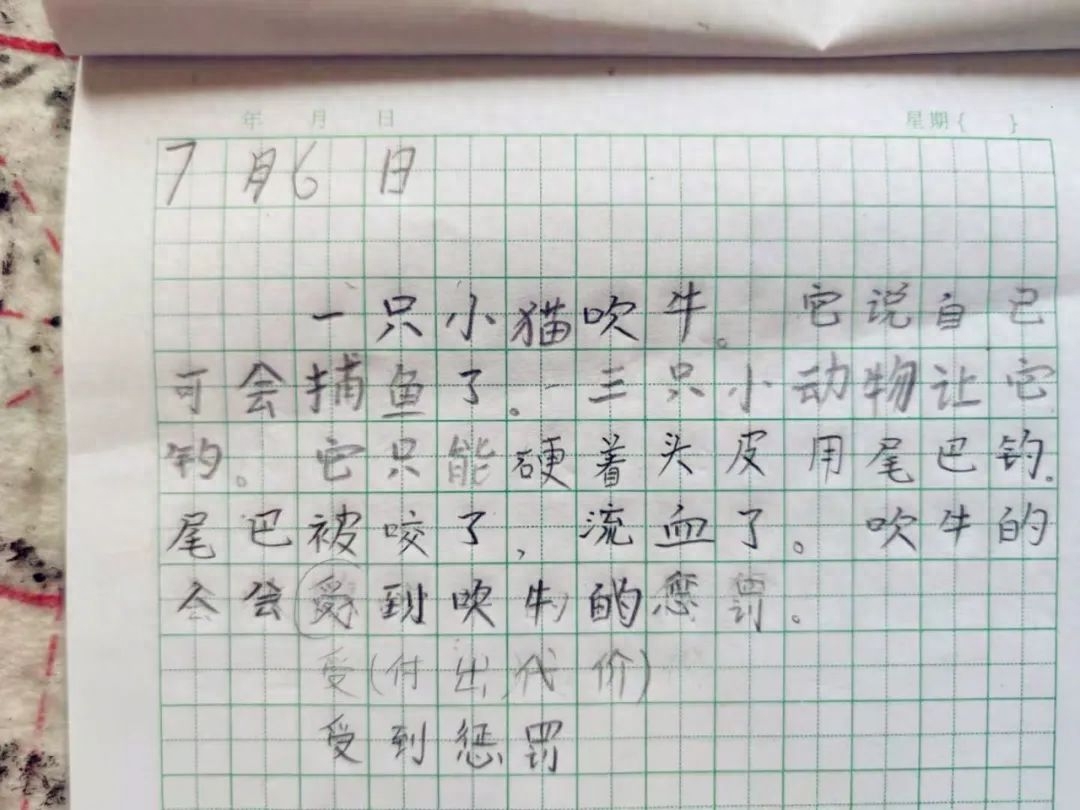 年 月 日 星期{ }
7月6日
一只小猫吹牛。它说自己
可会捕鱼了。三只小动物让它
钓。它只能硬着头皮用尾巴钓.
尾巴被咬了,流血了。吹牛的
会会受到吹牛的惩罚。
受(付出代价)
受到惩罚